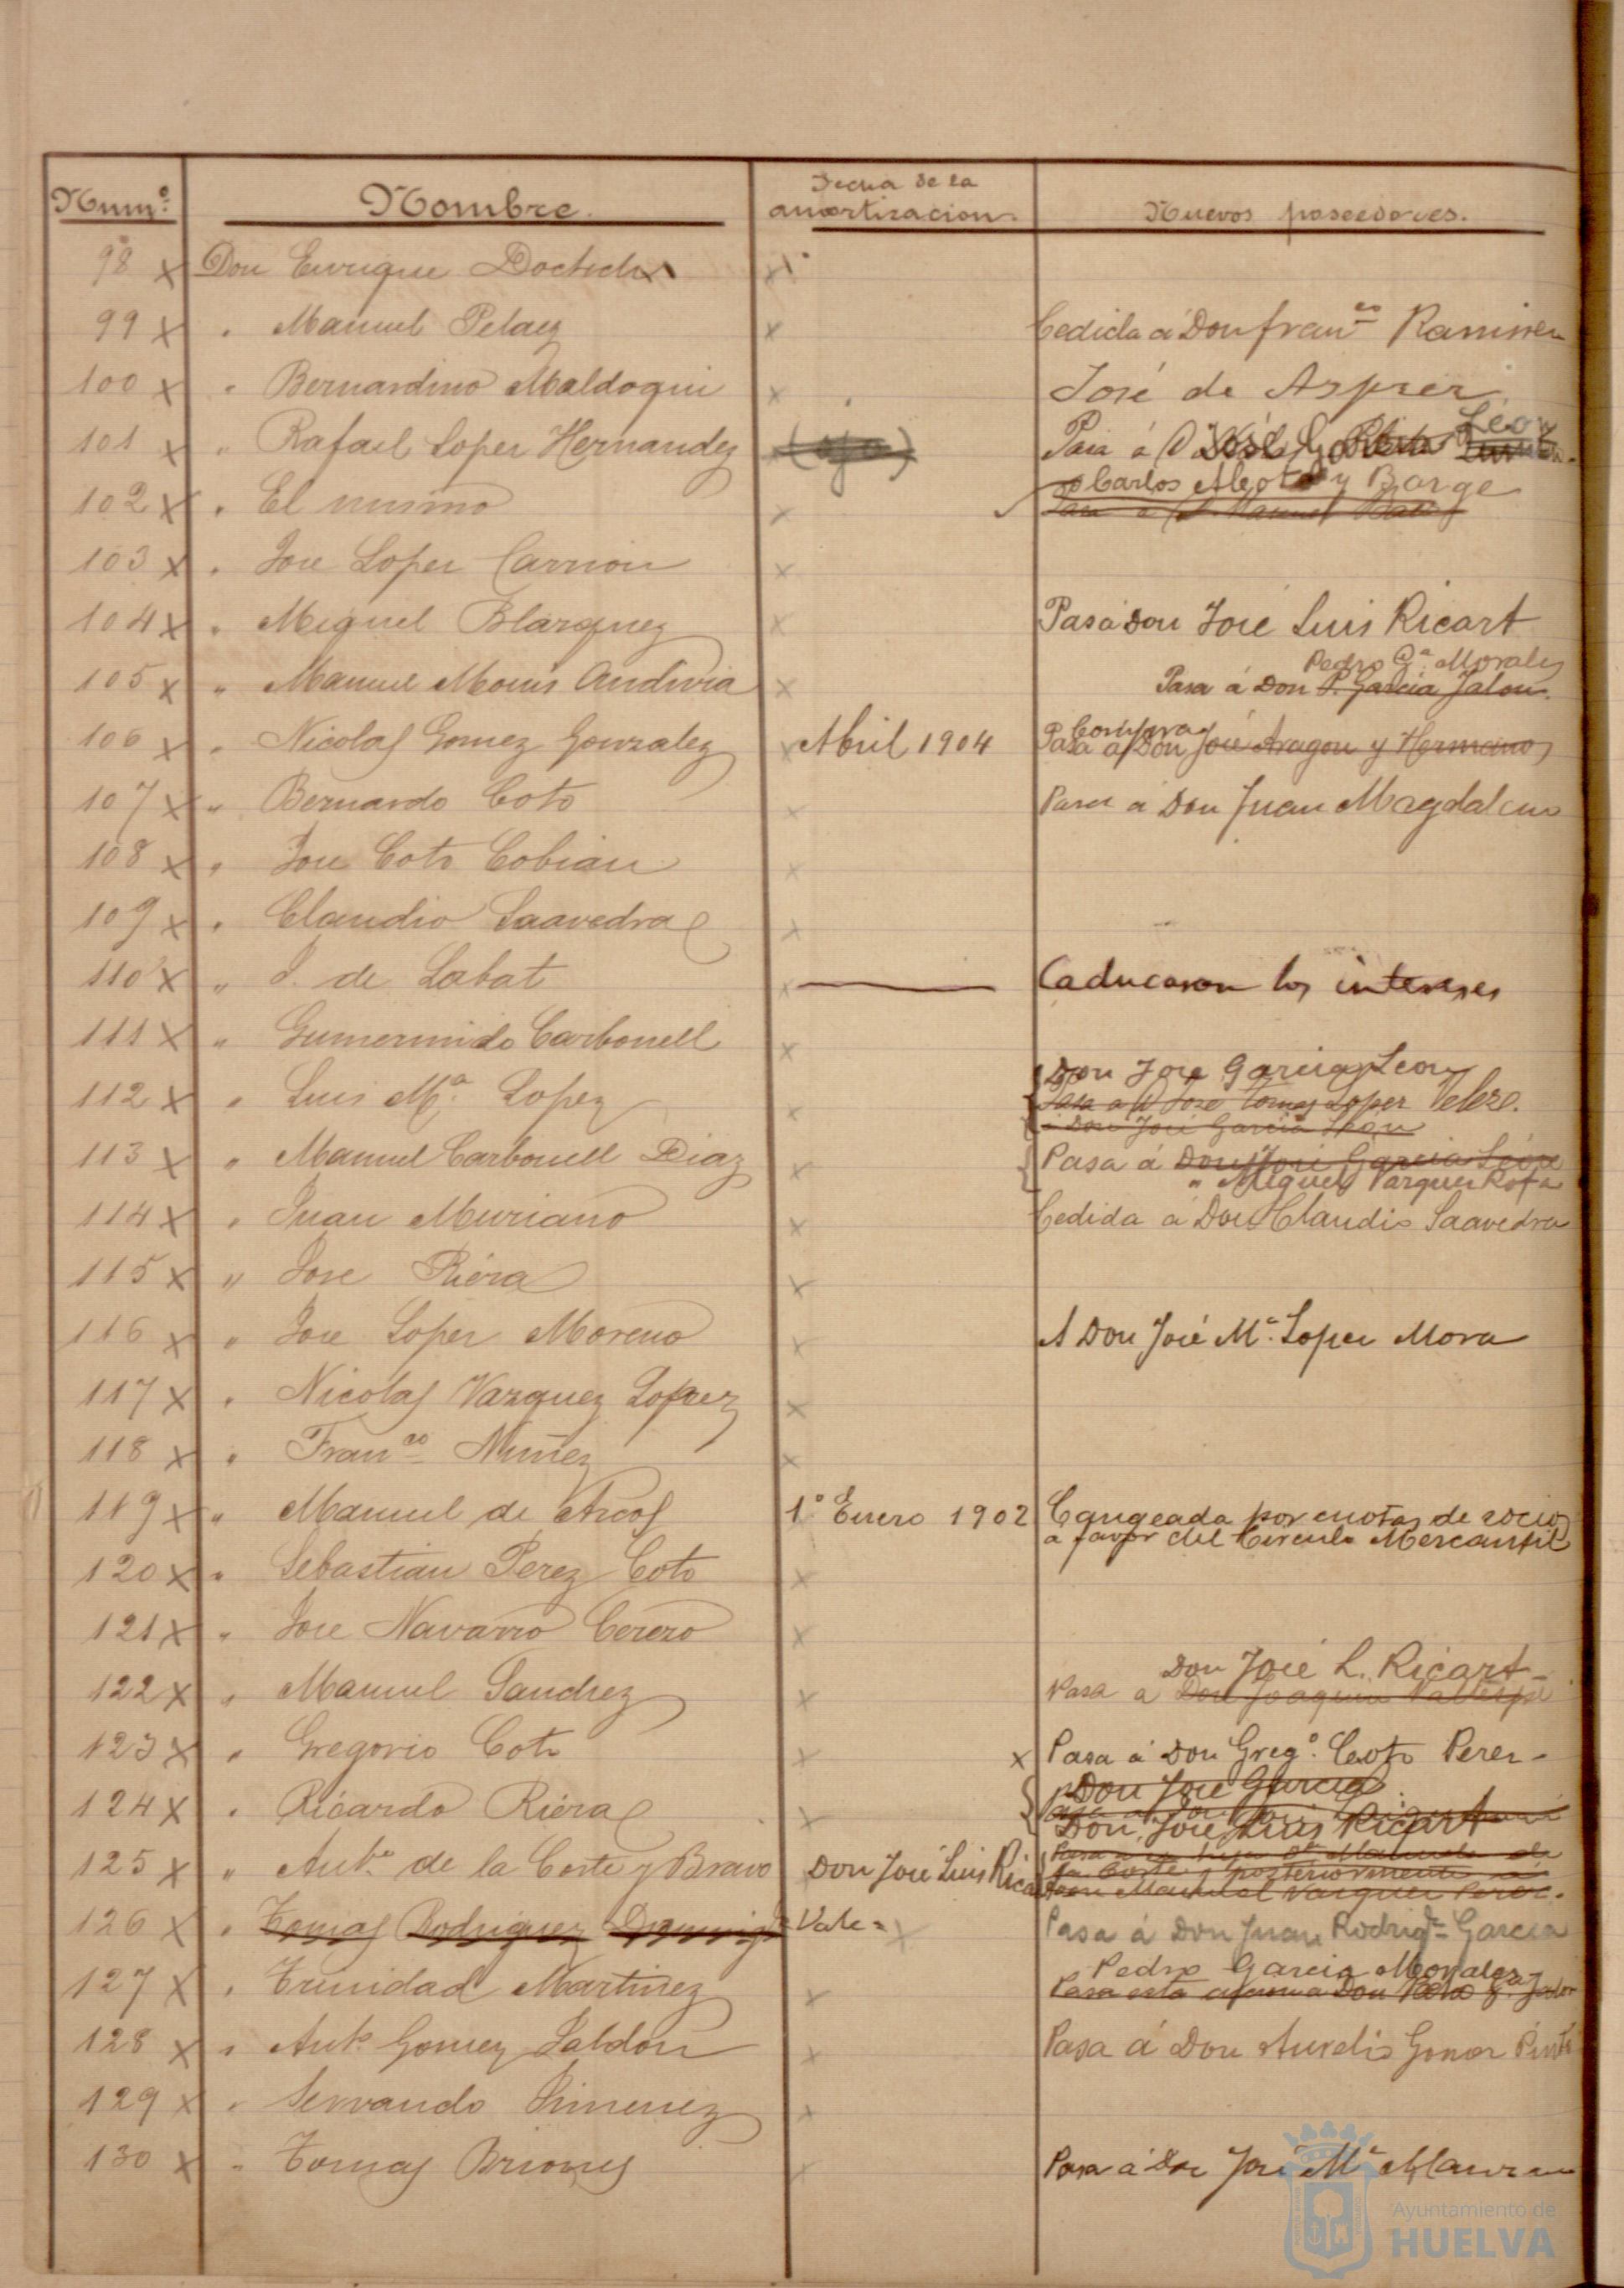 Num.º Nombre. Fecha de la
amortizacion. Nuevos poseedores.
98 x Don Enrique x
99 x " Manuel Pelaez x Cedida a Don Fran.co
100 x " Bernardino Maldoqui x José de Asprer
101 x " Rafael Lopez Hernandez Pasa á D José Leon
102 x " El mismo x Carlos Alcotd y Borge
103 x " Jose Lopez Carrion x
104 x " Miguel Blazquez x Pasa Don José Luis Ricart
Pedro G.a Morales
105 x " Manuel Monis Andivia x Pasa á Don P. Garcia Jalon.
Compra
106 x " Nicolas Gomez Gonzalez x Abril 1904 Pasa a Don José Aragon y Hermanos
107 x " Bernardo Coto x Pasa á Don Juan Magdaleno
108 x " Jose Coto Cobian x
109 x " Claudio Saavedra x
110 x " J. de Labat x Caducaron los intereses
111 x " Gumersindo Carbonell x
Don Jose Garcia Leon
112 x " Luis M.a Lopez x Pasa a D Jose Tomas Lopez Velez.
a Don José Garcia Leon
113 x " Manuel Carbonell Diaz x Pasa á Don José Garcia Leon
" Miguel Vazquez Rofa
114 x " Juan Muriano x Cedida á Don Claudio Saavedra
115 x " Jose Riera x
116 x " Jose Lopez Moreno x A Don José M.a Lopez Mora
117 x " Nicolas Vazquez Lopez x
118 x " Fran.co Nuñez x
119 x " Manuel de Arcos 1º Enero 1902 Cangeada por cuotas de socios
a favor del Circulo Mercantil
120 x " Sebastian Perez Coto x
121 x " Jose Navarro Cerezo x
Don José L. Ricart
122 x " Manuel Sanchez x Pasa á Don Joaquin
123 x " Gregorio Coto x x Pasa á Don Greg.o Coto Perez
Don Jose Garcia
124 x " Ricardo Riera x
Don José Luis Ricart
125 x " Ant.o de la Corte y Bravo Don José Luis Ricart Pasa a su hija D.a Manuela de
la Corte y posteriormente á
Don Manuel Vazquez Perez.
126 x " Tomas Rodriguez Vale x Pasa á Don Juan Rodrig.z Garcia
Pedro Garcia Morales
127 x " Trinidad Martinez x Pasa esta á Don Pedro G.
128 x " Ant.o Gomez Saldon x Pasa á Don Aurelio Gomez
129 x " Servando Jimenez x
130 x " Tomas Briones x Pasa á Don José M.a
Ayuntamiento de
HUELVA